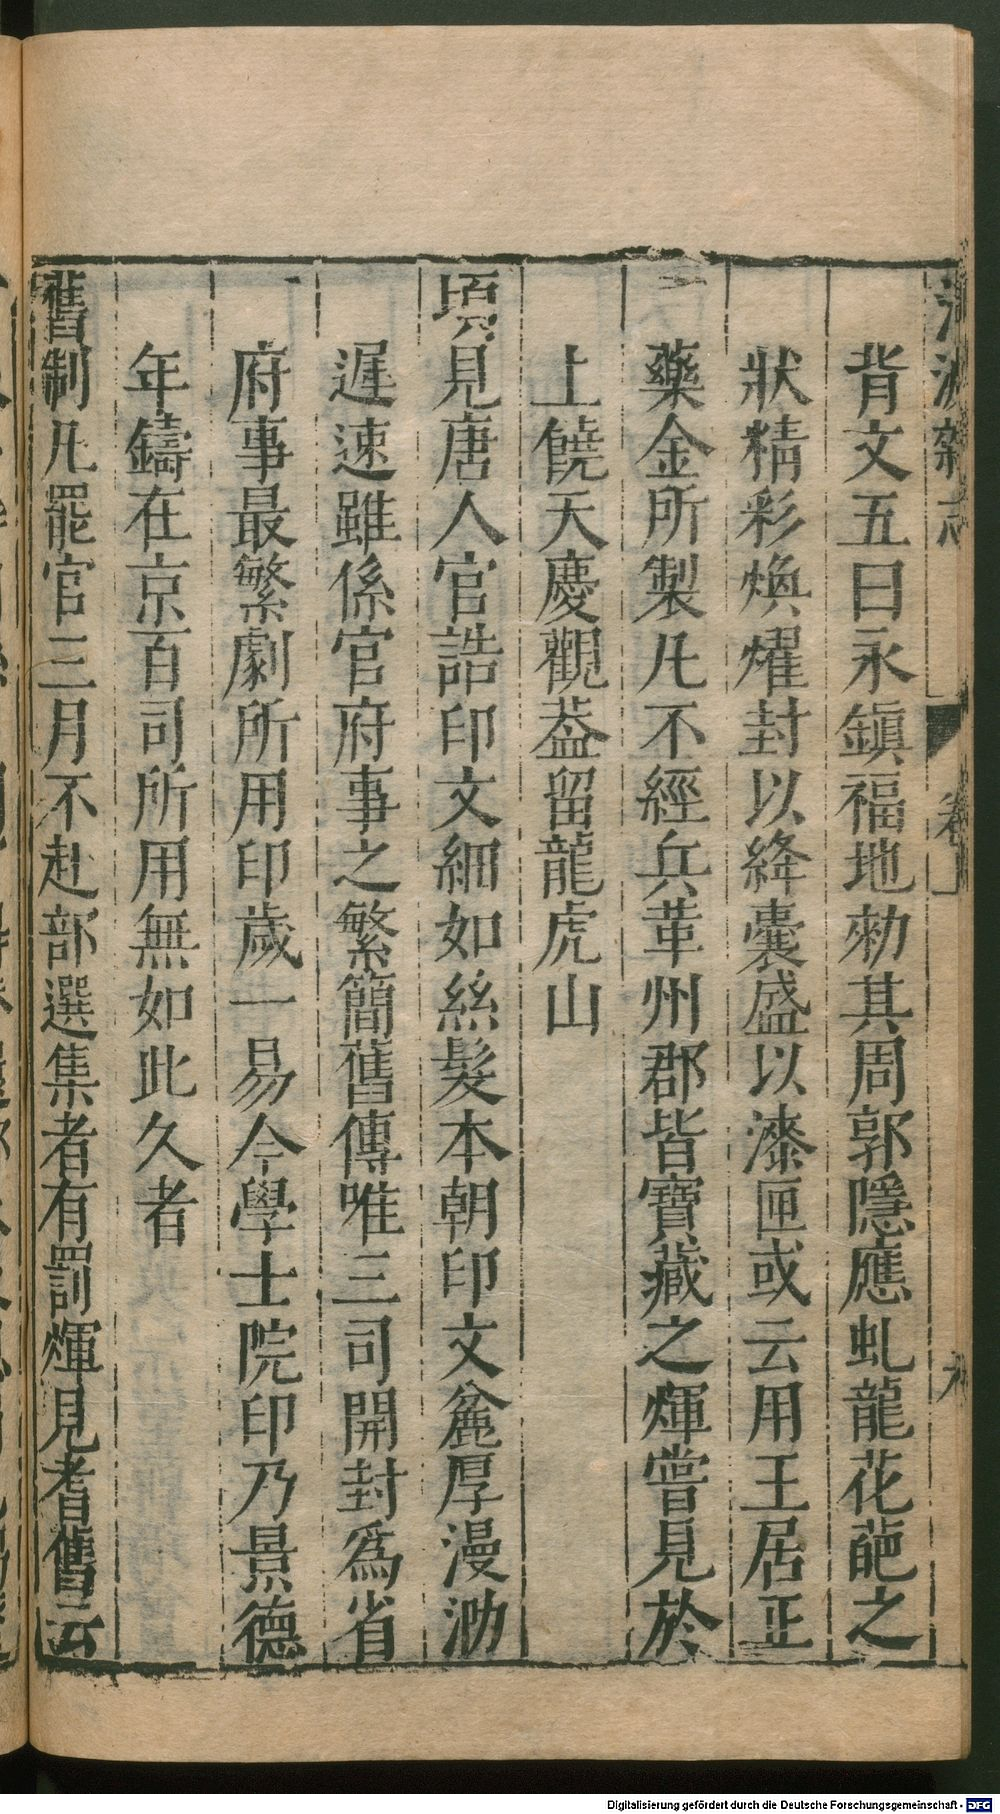 背文五曰永鎮福地勑其周郭隱應虬龍花葩之
狀精彩煥燿封以絳囊盛以漆匣或云用王居正
藥金所製凡不經兵革州郡皆寶藏之煇嘗見於
上饒天慶觀葢留龍虎山
頃見唐人官誥印文細如絲髮本朝印文麄厚漫泐
遲速雖係官府事之繁簡舊傳唯三司開封爲省
府事最繁劇所用印歲一易今學士院印乃景德
年鑄在京百司所用無如此久者
舊制凡罷官三月不赴部選集者有罰煇見耆舊云
Digitalisierung gefördert durch die Deutsche Forschungsgemeinschaft - DFG